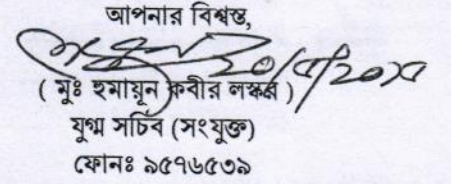 আপনার বিশ্বস্ত,
( মুঃ হুমায়ূন কবীর লস্কর )
যুগ্ম সচিব (সংযুক্ত)
ফোনঃ ৯৫৭৬৫৩৯